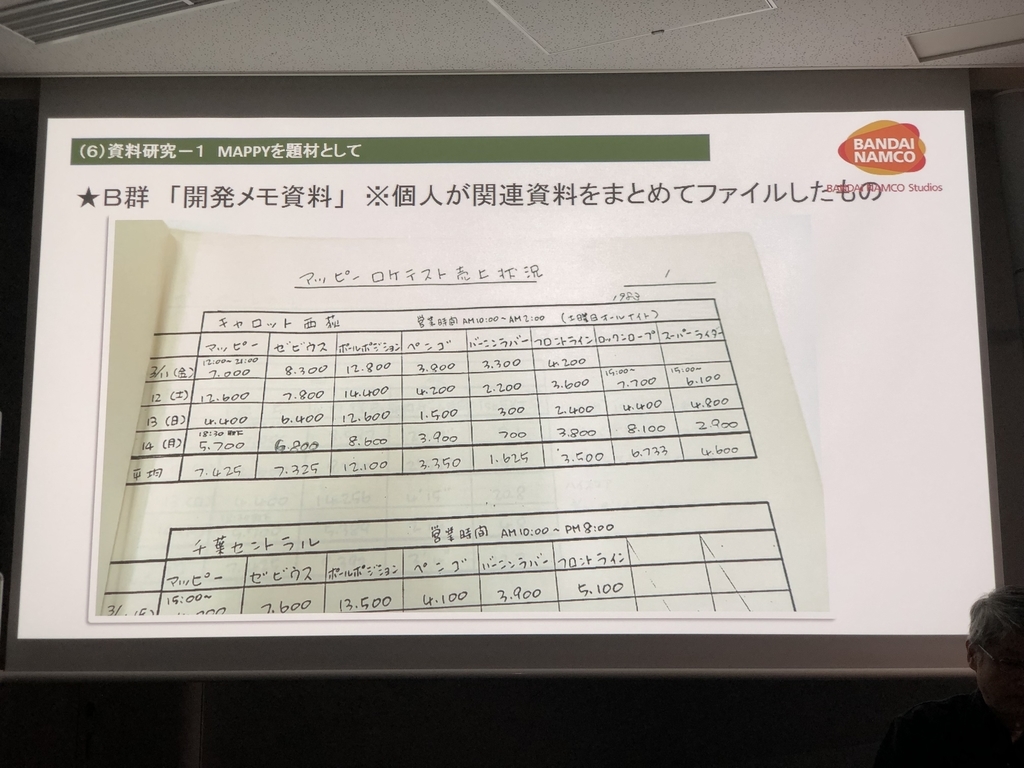 (6)資料研究－1 MAPPYを題材として
BANDAI
NAMCO
BANDAI NAMCO Studios
★B群 「開発メモ資料」 ※個人が関連資料をまとめてファイルしたもの
マッピー ロケテスト売上状況
1
1983
キャロット西荻 営業時間 AM10:00~AM2:00 (土曜日オールナイト)
マッピー ゼビウス ポールポジション ペンゴ バーニンラバー フロントライン ロックンロープ スーパーライダー
12:00~21:00
3/11(金) 7.000 8.300 12.800 3.800 3.300 4.200
15:00~ 15:00~
12(土) 12.600 7.800 14.400 4.200 2.200 3.600 7.700 6.100
13(日) 4.400 6.400 12.600 1.500 300 2.400 4.400 4.800
18:30
14(月) 5.700 6.800 8.600 3.900 700 3.800 8.100 2.900
平均 7.425 7.325 12.100 3.350 1.625 3.500 6.733 4.600
千葉セントラル 営業時間 AM10:00~PM8:00
マッピー ゼビウス ポールポジション ペンゴ バーニンラバー フロントライン
15:00~
7.600 13.500 4.100 3.900 5.100